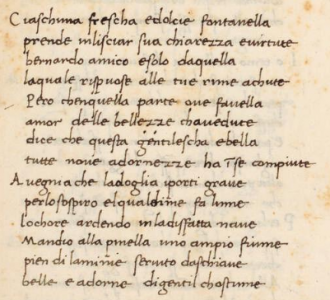 Ciaschuna frescha e dolcie fontanella
prende in lisciar sua chiarezza e virtute
bernardo amico e solo da quella
laquale rispuose alle tue rime achute
Pero che in quella parte oue fauella
amor delle bellezze cha uedute
dice che questa gentilescha e bella
tutte noue adornezze ha in se compiute
A uegnia che la doglia i porti graue
per lo sospiro el qual di me fa lume
lo chore ardendo in la disfatta naue
Mando io alla pinella uno ampio fiume
pien di lamie seruito da schiaue
belle e adorne di gentil chostume